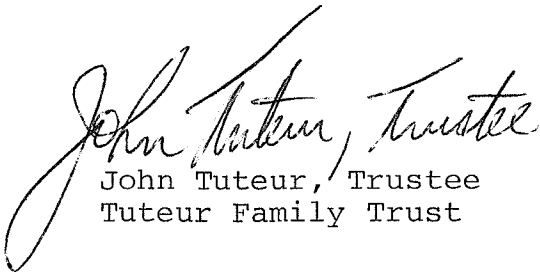 John Tuteur, Trustee
John Tuteur, Trustee
Tuteur Family Trust